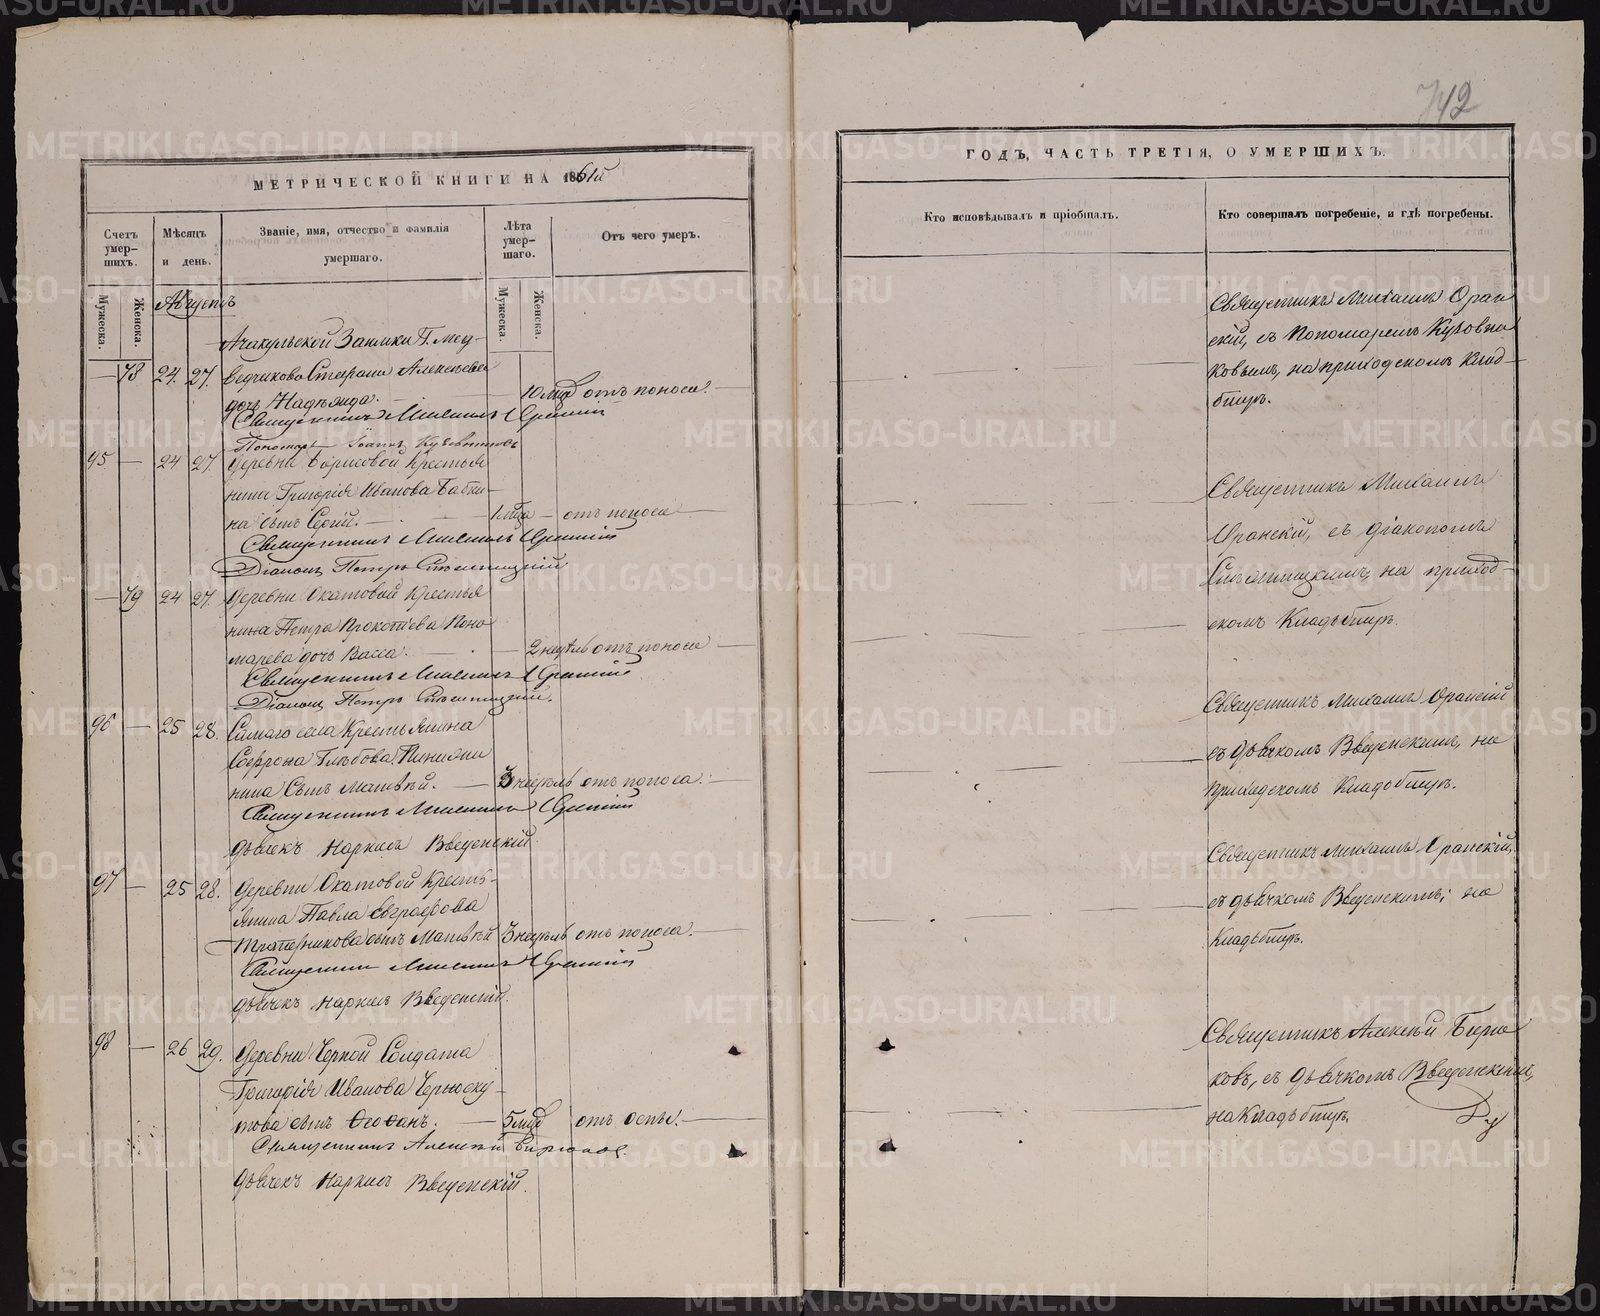 742
МЕТРИЧЕСКОЙ КНИГИ НА 1861й
ГОДЪ, ЧАСТЬ ТРЕТІЯ, О УМЕРШИХЪ.
Счетъ умер-шихъ.
Мѣсяцъ и день.
Званіе, имя, отчество и фамилія умершаго.
Лѣта умер-шаго.
Отъ чего умеръ.
Кто исповѣдывалъ и пріобщалъ.
Кто совершалъ погребеніе, и гдѣ погребены.
Мужеска.
Женска.
Мужеска.
Женска.
Августъ
Заимки Г. Мед-
78 24. 27. Алексѣева
дочь Надежда. 10 мца отъ поноса.
Священникъ Михаилъ Оранскій
Пономарь Іоаннъ
95 24 27. Деревни Борисовой Крестья
нина Григорія Иванова Бабки-
на сынъ Сергій. 1 мца отъ поноса
Священникъ Михаилъ Оранскій
Діаконъ Петръ
79 24 27. Деревни Окатовой Крестья
нина Петра Прокопіева Поно
марева дочь Васса. 2 недѣль отъ поноса
Священникъ Михаилъ Оранскій
Діаконъ Петръ
96 25 28. Самаго села Крестьянина
Софрона Глѣбова
нина Сынъ Матвѣй. 3 недѣль отъ поноса.
Священникъ Михаилъ Оранскій
Дьячекъ Наркисъ Введенскій.
97 25 28. Деревни Окатовой Кресть-
янина Павла Евграфова
сынъ Матвѣй 3 недѣль отъ поноса.
Священникъ Михаилъ Оранскій
Дьячекъ Наркисъ Введенскій.
98 26 29. Деревни Черной Солдата
Григорія Иванова
това сынъ Ѳеофанъ. 5 мцъ отъ оспы.
Священникъ Алексѣй Бирюковъ.
Дьячекъ Наркисъ Введенскій.
Священникъ Михаилъ Оран
скій, съ Пономаремъ
ковымъ, на приходскомъ Клад-
бищѣ.
Священникъ Михаилъ
Оранскій, съ діакономъ
на приход-
скомъ Кладьбищѣ.
Священникъ Михаилъ Оранскій
съ дьячкомъ Введенскимъ, на
приходскомъ Кладьбищѣ.
Священникъ Михаилъ Оранскій,
съ дьячкомъ Введенскимъ, на
Кладьбищѣ.
Священникъ Алексѣй Бирю
ковъ, съ дьячкомъ Введенскимъ,
на Кладьбищѣ.
METRIKI.GASO-URAL.RU